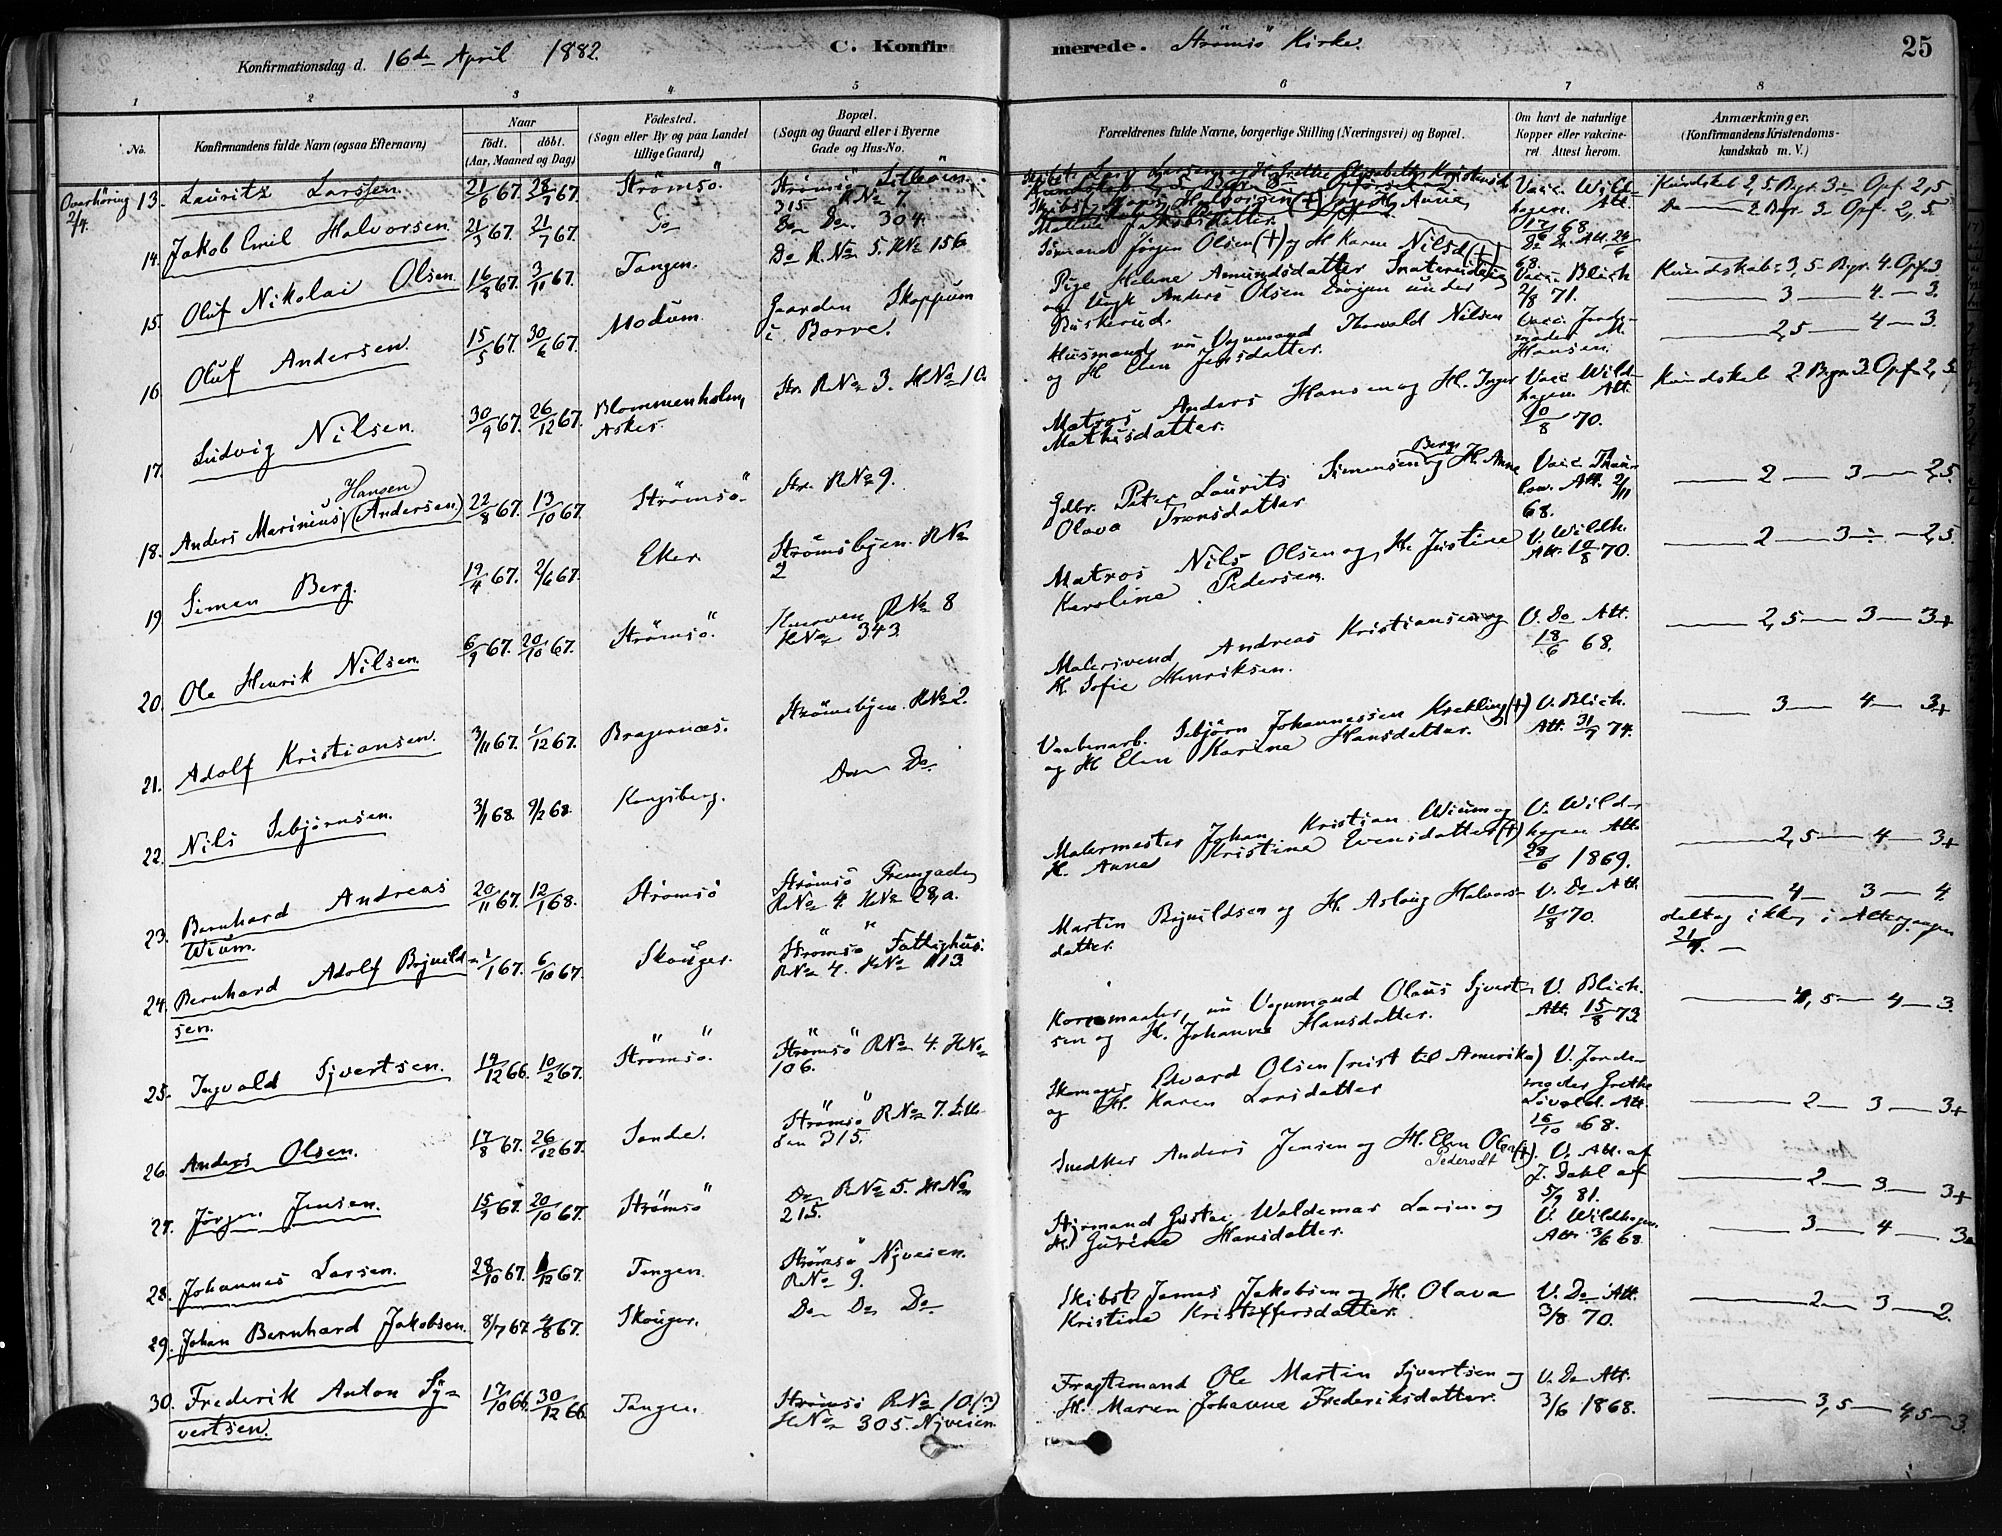 Konfirmationsdag d. 16de April 1882.
C. Konfirmerede. Strömsö Kirke.
25
1 2 3 4 5 6 7 8
No.
Konfirmandens fulde Navn (ogsaa Efternavn)
Naar
födt. döbt.
(Aar, Maaned og Dag)
Födested.
(Sogn eller By og paa Landet
tillige Gaard)
Bopæl.
(Sogn og Gaard eller i Byerne
Gade og Hus-No.
Forældrenes fulde Navne, borgerlige Stilling (Næringsvei) og Bopæl.
Om havt de naturlige
Kopper eller vakcine-
ret. Attest herom.
Anmærkninger.
(Konfirmandens Kristendoms-
kundskab m. V.)
Overhöring 2/4.
13. Lauritz Larssen. 21/6 67. 28/7 67. Strömsö. Strömsö
315 RNo 7.
Vacc. Wild-
hagen. Att.
17/6 68.
Kundskab 2,5. Bgr. 3 Opf. 2,5
14. Jakob Emil Halvorsen. 21/3 67. 21/7 67. Do Do Do 304.
Do 2 Bgr. 3 Opf. 2,5.
15. Oluf Nikolai Olsen 16/8 67. 3/11 67. Tangen. Do R.No 5. HNo 156
Sömand Jörgen Olsen (†) og H. Karen Nilsd (†)
Kundskab: 3,5. Bgr. 4. Opf. 3.
16. Oluf Andersen 15/5 67. 30/6 67. Modum. Gaarden Skoppum
i Borre.
Pige Helene Amundsdatter
og Ungk Anders Olsen under
Buskerud.
Vacc. Blich
2/8 71.
3 4. 3.
17. Ludvig Nilsen. 30/9 67. 26/12 67. Blommenholm,
Asker. Str. RNo 3. HNo 10.
Husmand, nu Vognmand Thorvald Nilsen
og H. Elen Jensdatter.
Vacc. Jorde-
moder
Hansen.
2,5 4 3.
18. Anders Marinius Hansen (Andersen) 22/8 67. 13/10 67. Strömsö. Str. RNo 9.
Matros Anders Hansen og H. Inger
Mathisdatter.
Vacc. Wild-
hagen. Att.
10/8 70.
Kundskab 2 Bgr. 3 Opf. 2,5.
19 Simen Berg. 19/4 67. 2/6 67. Eker Strömsbyen. RNo
2
Gdbr. Peter Laurits Simensen Berg og H. Anne
Olava Tronsdatter
Vacc. Thau-
low. Att. 2/11
68.
2 3 2,5.
20. Ole Henrik Nilsen. 6/9 67. 20/10 67. Strömsö. RNo 8
HNo 343.
Matros Nils Olsen og H. Justine
Karoline Pedersen.
V. Wildh.
Att. 10/8 70.
2 3 2,5.
21. Adolf Kristiansen. 3/11 67. 1/12 67. Bragernæs. Strömsbyen. RNo 2.
Malersvend Andreas Kristiansen og
H. Sofie Henriksen.
V. Do Att.
18/6 68.
2,5 3 3+
22. Nils Sebjörnsen. 3/1 68. 9/2 68. Kongsberg. Do Do.
Vaabenarb. Sebjörn Johannessen Krekling (†)
og H. Elen Karine Hansdatter.
V. Blich.
Att. 31/7 74.
3 4 3+
23. Bernhard Andreas
Wium. 20/11 67. 12/1 68. Strömsö Strömsö Tremgaden
RNo 4. HNo 28,a.
Malermester Johan Kristian Wium og
H. Anne Kristine Evensdatter (†)
V. Wild-
hagen Att.
28/6 1869.
2,5 4 3+
24. Bernhard Adolf Bojuild-
sen. 1/1 67. 6/10 67. Skouger. Strömsö Fattighus.
RNo 4. HNo 113.
Martin Bojuildsen og H. Aslaug Halvors-
datter.
V. Do Att.
10/8 70.
4 3 4.
deltog ikke i Altergangen
21/4.
25. Ingvald Syvertsen. 19/12 66. 10/2 67. Strömsö. Strömsö RNo 4. HNo
106.
Kornmaaler, nu Vognmand Olaus Syvert-
sen og H. Johanne Hansdatter.
V. Blich.
Att. 15/8 73.
4,5 4 3.
26. Anders Olsen. 17/8 67. 26/12 67. Sande. Strömsö RNo 7. Lille-
öen 315.
Skomager Edvard Olsen (reist til Amerika)
og H. Karen Larsdatter
V. Jorde-
moder Grethe
Att.
16/10 68.
2 3 3+
27. Jörgen Jensen. 15/9 67. 20/10 67. Strömsö Do RNo 5. HNo
215.
Snedker Anders Jensen og H. Elen Olea (†).
Pedersdt
V. Att. af
J. Dahl af
5/9 81.
2 3 3+
28. Johannes Larsen. 28/10 67. 1/12 67. Tangen. Strömsö Nyveien.
RNo 9.
Styrmand Gustav Waldemar Larsen og
H. Gurine Hansdatter.
V. Wildhagen.
Att. 3/6 68.
3 4 3
29. Johan Bernhard Jakobsen. 8/7 67. 4/8 67. Skouger. Do Do Do
Skibst. James Jakobsen og H. Olava
Kristine Kristoffersdatter.
V. Do Att.
3/8 70.
2 3 2.
30. Frederik Anton Sy-
vertsen. 17/10 66. 30/12 66. Tangen. Strömsö RNo 10.(?)
HNo 305. Nyveien
Fragtemand Ole Martin Syvertsen og
H. Maren Johanne Frederiksdatter.
V. Do Att.
3/6 1868.
3,5 4,5 3.